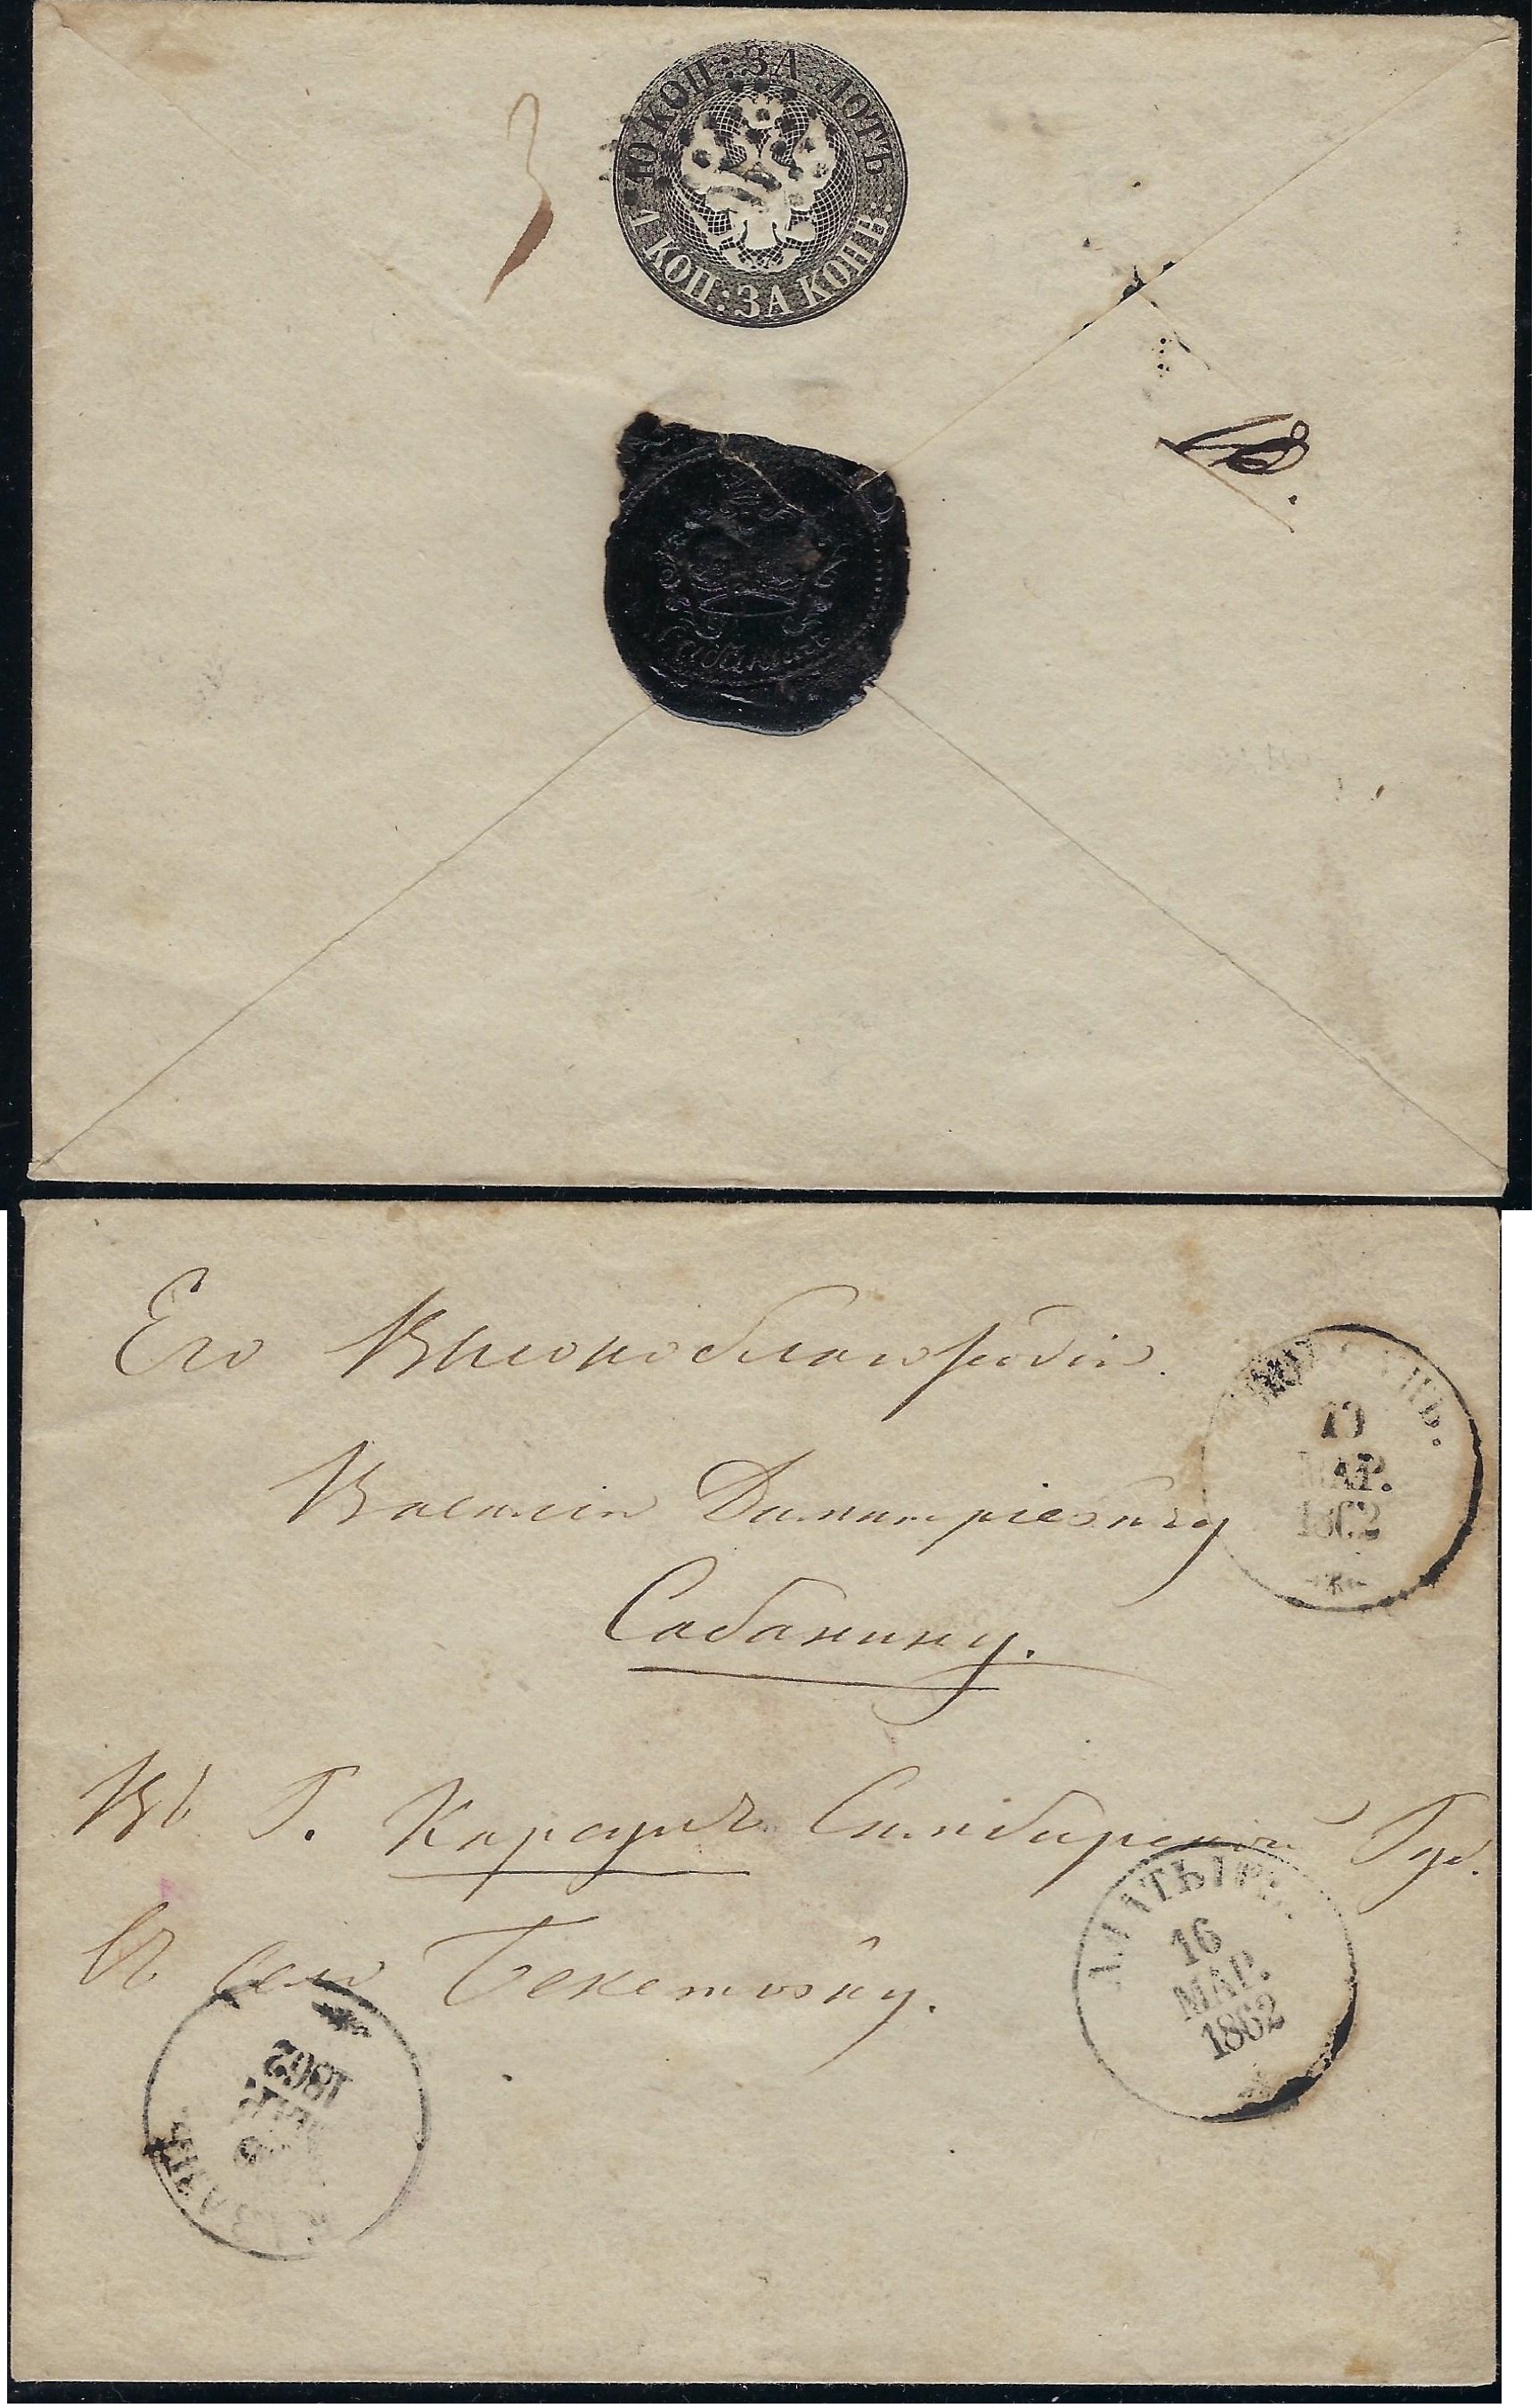 10 КОП: ЗА ЛОТЪ
1 КОП: ЗА КОНВ:
Его Высокоблагородію.
Василію Димитріевичу
Сабанину.
Въ Г. Карсунъ Симбирской Губ.
въ село Бекетовку.
МАР.
1862
АЛАТЫРЬ
16
МАР.
1862
1862